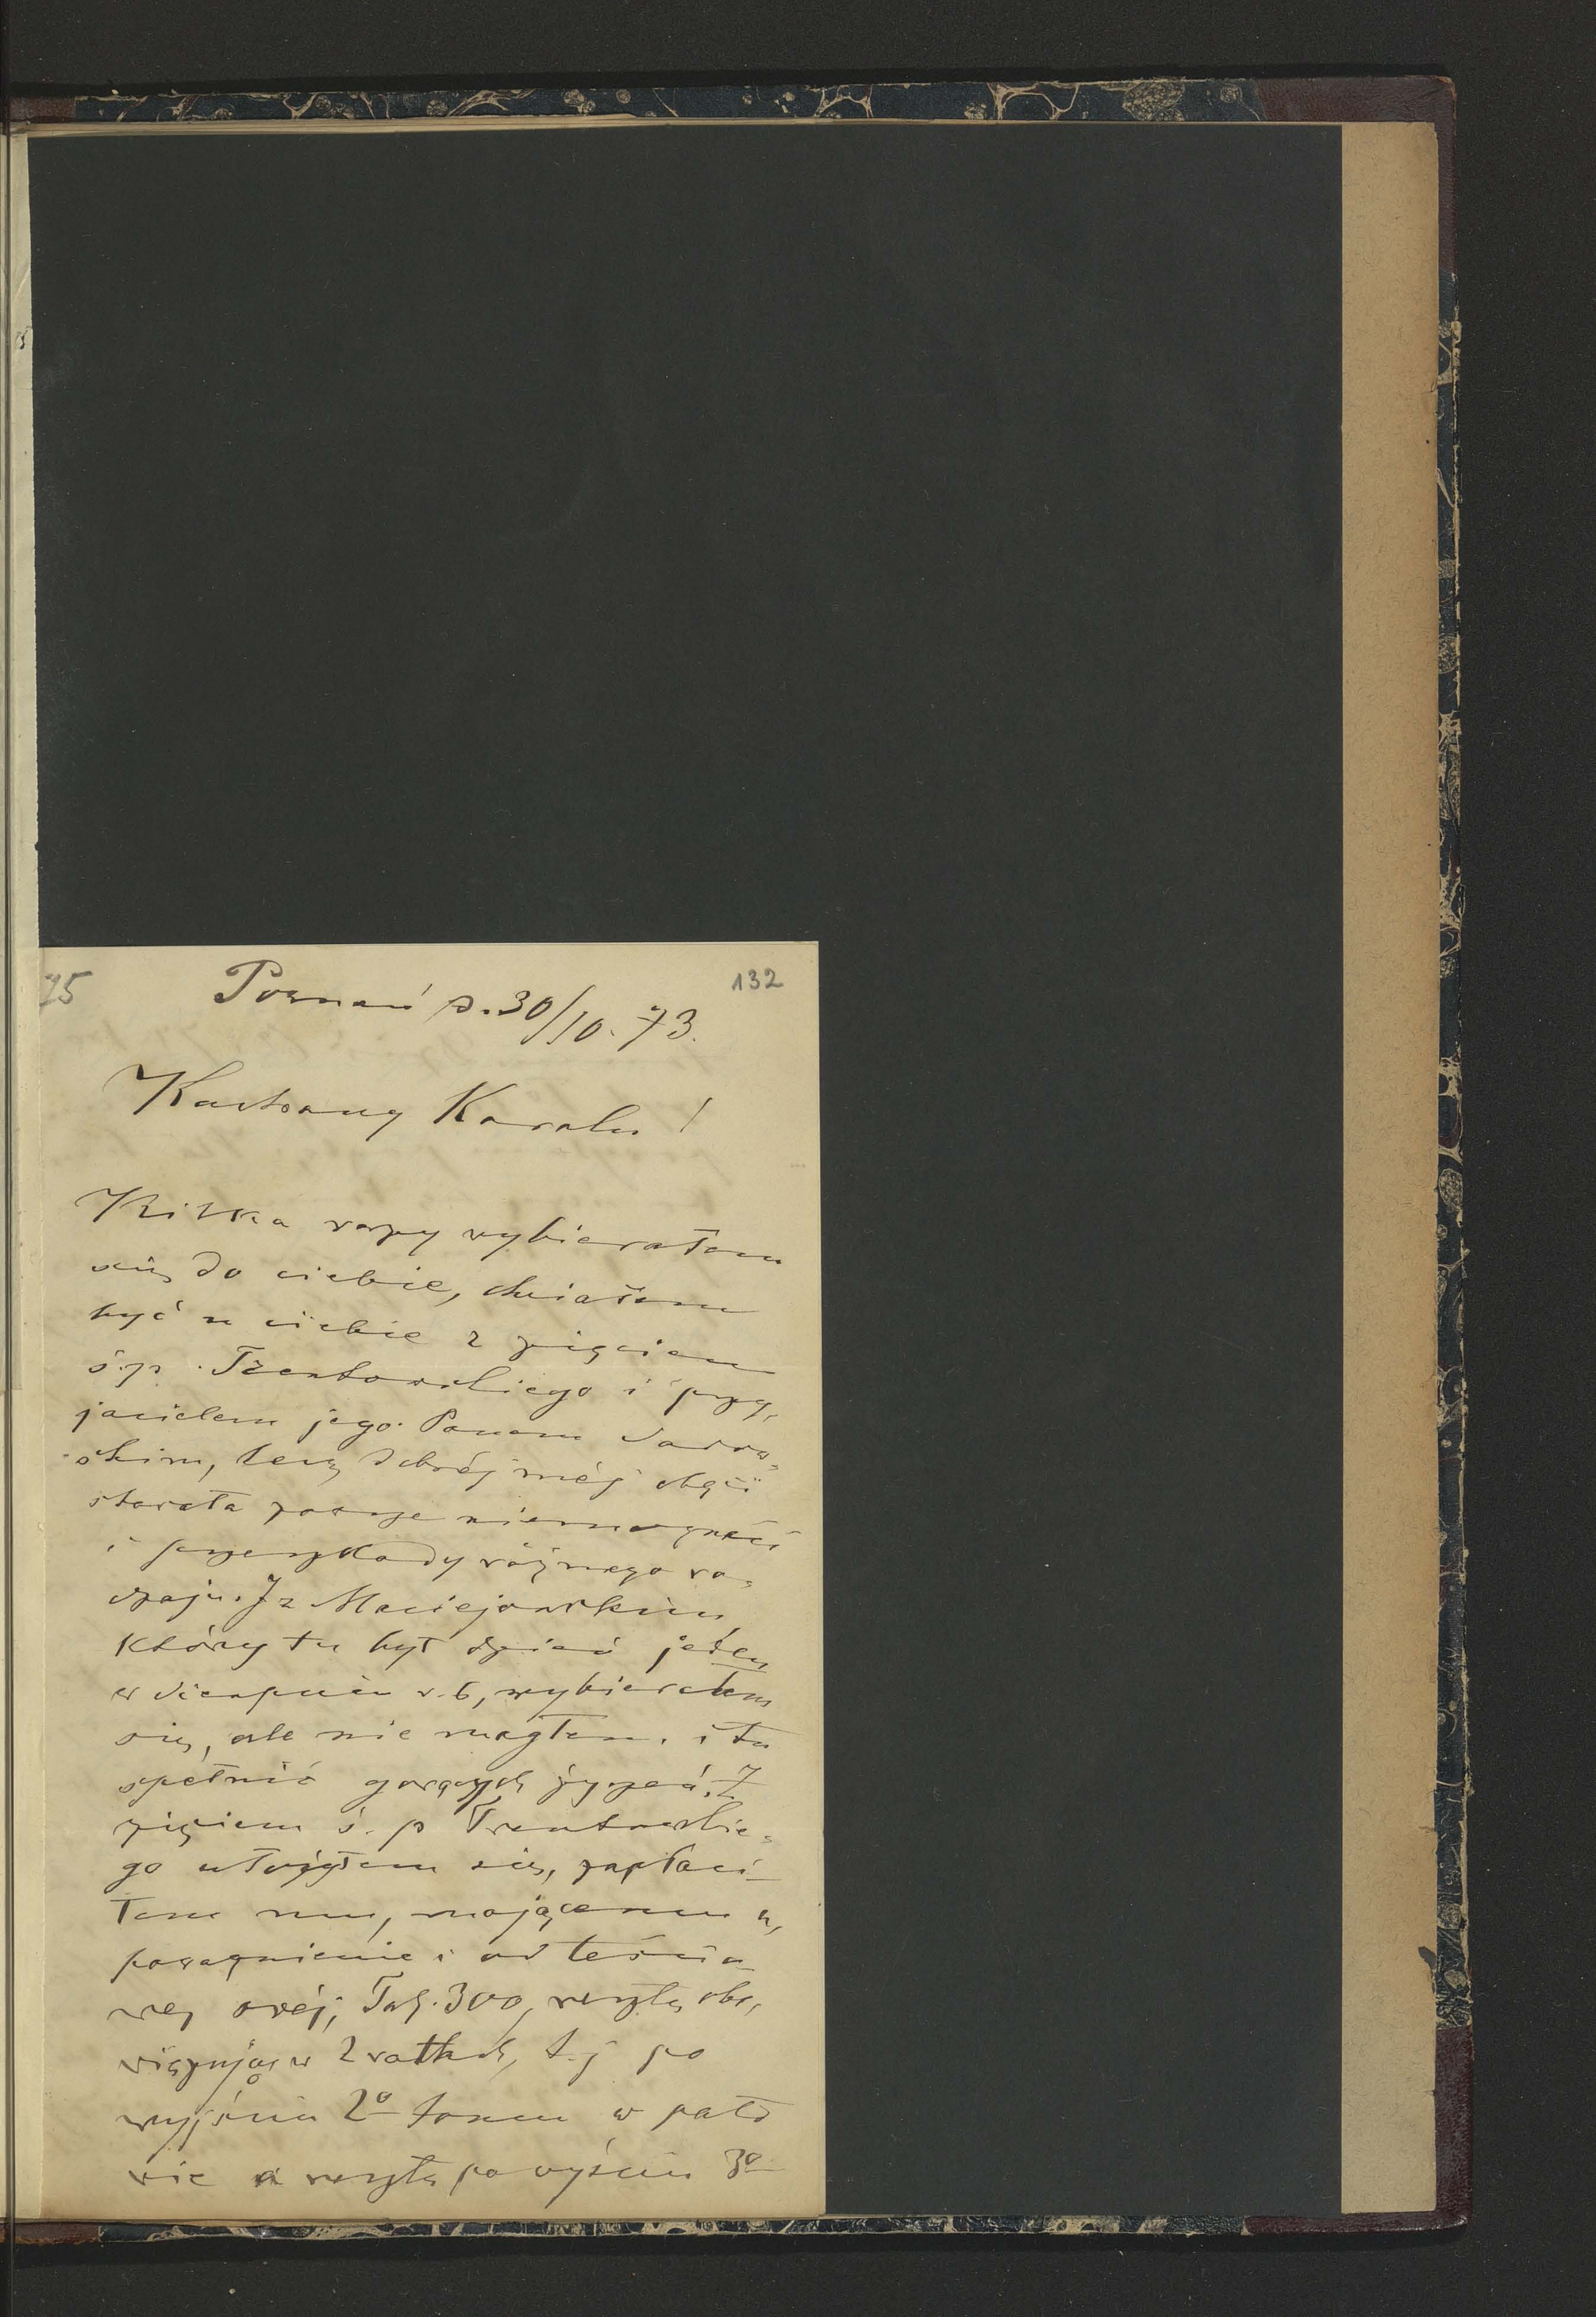 75
132
Poznań d. 30/10. 73.
Kochany Karolu!
Kilka razy wybierałem
się do ciebie, chciałem
być u ciebie z zięciem
ś.p. Trentowskiego i przy,
jacielem jego Panem
skim, lecz dobréj méj chęci
stawała zawsze niemożność
i przeszkody różnego ro=
dzaju. I z Maciejowskim
który tu był dzień jeden
w Sierpniu r. b, wybierałem
się, ale nie mogłem i tu
spełnić gorących życzeń. Z
zięciem ś. p Trentowskie=
go ułożyłem się, zapłaci-
łem mu, mającemu u,
poważnienie i od teścio-
wej swéj, Tal. 300, resztę obo,
więzując w 2 ratach, t. j po
wyjściu 2o tomu w poło
wie a resztę po wyściu 3o